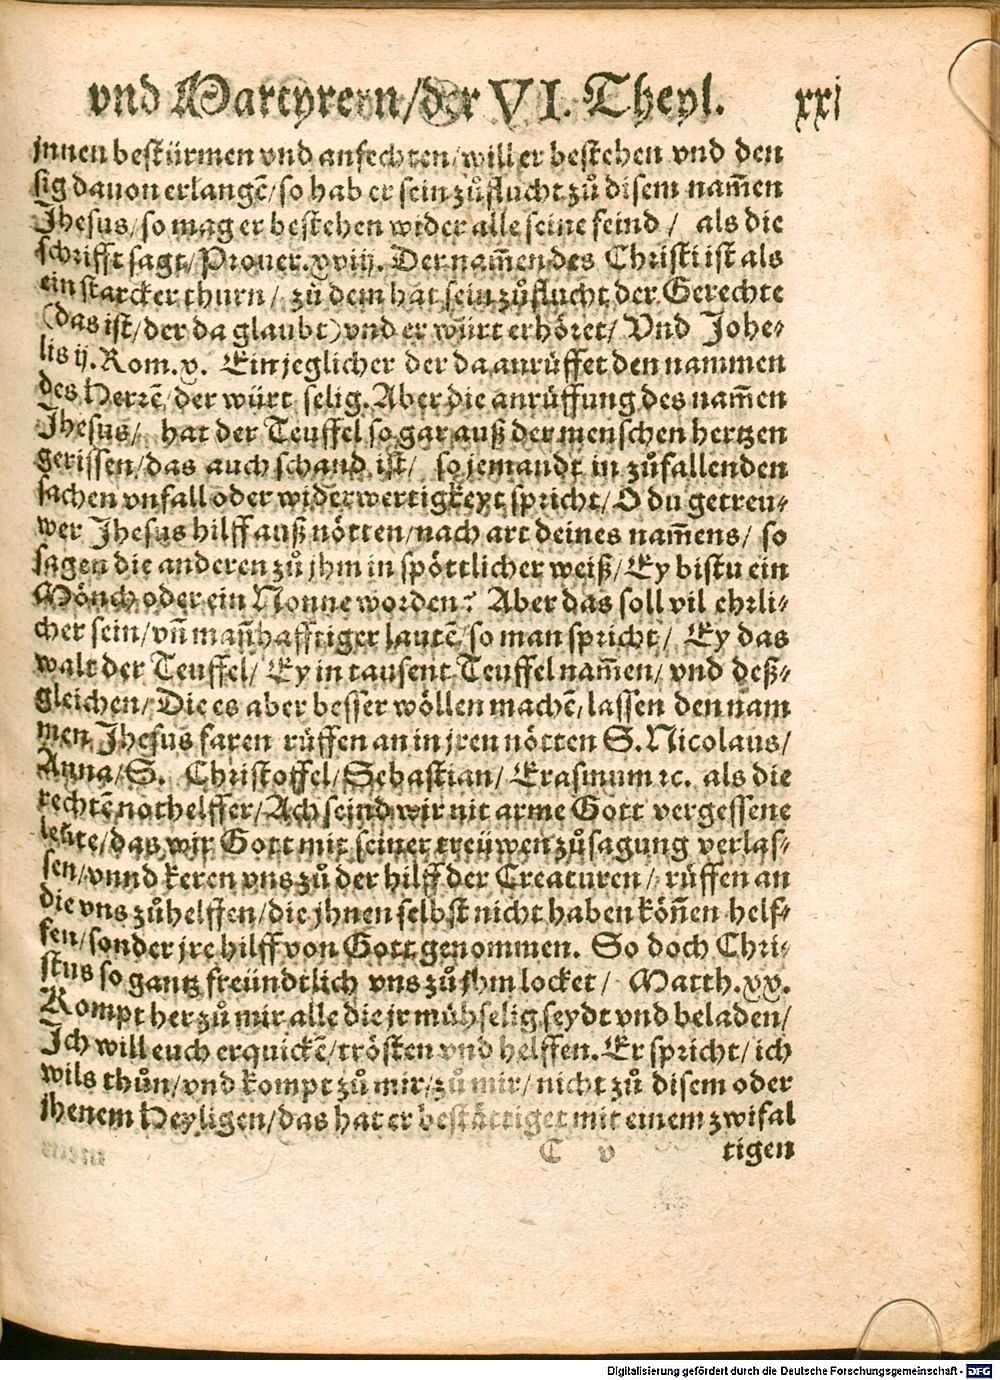 vnd Martyrern/der VI. Theyl. xxj
jnnen bestürmen vnd anfechten/will er bestehen vnd den
sig dauon erlangẽ/so hab er sein zůflucht zů disem nam̃en
Jhesus/so mag er bestehen wider alle seine feind/ als die
schrifft sagt/Prouer.xviij. Der nam̃en des Christi ist als
ein starcker thurn/ zů dem hat sein zůflucht der Gerechte
(das ist/der da glaubt) vnd er würt erhöret/ Vnd Johe-
lis ij. Rom.x. Ein jeglicher der da anrüffet den nammen
des Herrẽ/der würt selig. Aber die anrüffung des nam̃en
Jhesus/ hat der Teuffel so gar auß der menschen hertzen
gerissen/das auch schand ist/ so jemandt in zůfallenden
sachen vnfall oder widerwertigkeyt spricht/O du getreu-
wer Jhesus hilff auß nötten/nach art deines nam̃ens/ so
sagen die anderen zů jhm in spöttlicher weiß/Ey bistu ein
Mönch oder ein Nonne worden? Aber das soll vil ehrli-
cher sein/vñ mañhafftiger lautẽ/so man spricht/ Ey das
walt der Teuffel/ Ey in tausent Teuffel nam̃en/ vnd deß-
gleichen/Die es aber besser wöllen machẽ/lassen den nam
men Jhesus faren rüffen an in jren nötten S.Nicolaus/
Anna/S. Christoffel/Sebastian/ Erasmum ꝛc. als die
rechtẽ nothelffer/Ach seind wir nit arme Gott vergessene
leute/das wir Gott mit seiner treüwen zůsagung verlas-
sen/vnnd keren vns zů der hilff der Creaturen/ rüffen an
die vns zůhelffen/die jhnen selbst nicht haben kön̄en helf-
fen/sonder jre hilff von Gott genommen. So doch Chri-
stus so gantz freündtlich vns zů jhm locket/ Matth.xx.
Kompt her zů mir alle die jr mühselig seydt vnd beladen/
Ich will euch erquickẽ/trösten vnd helffen. Er spricht/ich
wils thůn/vnd kompt zů mir/zů mir/nicht zů disem oder
jhenem Heyligen/das hat er bestättiget mit einem zwifal
C v tigen
Digitalisierung gefördert durch die Deutsche Forschungsgemeinschaft - DFG